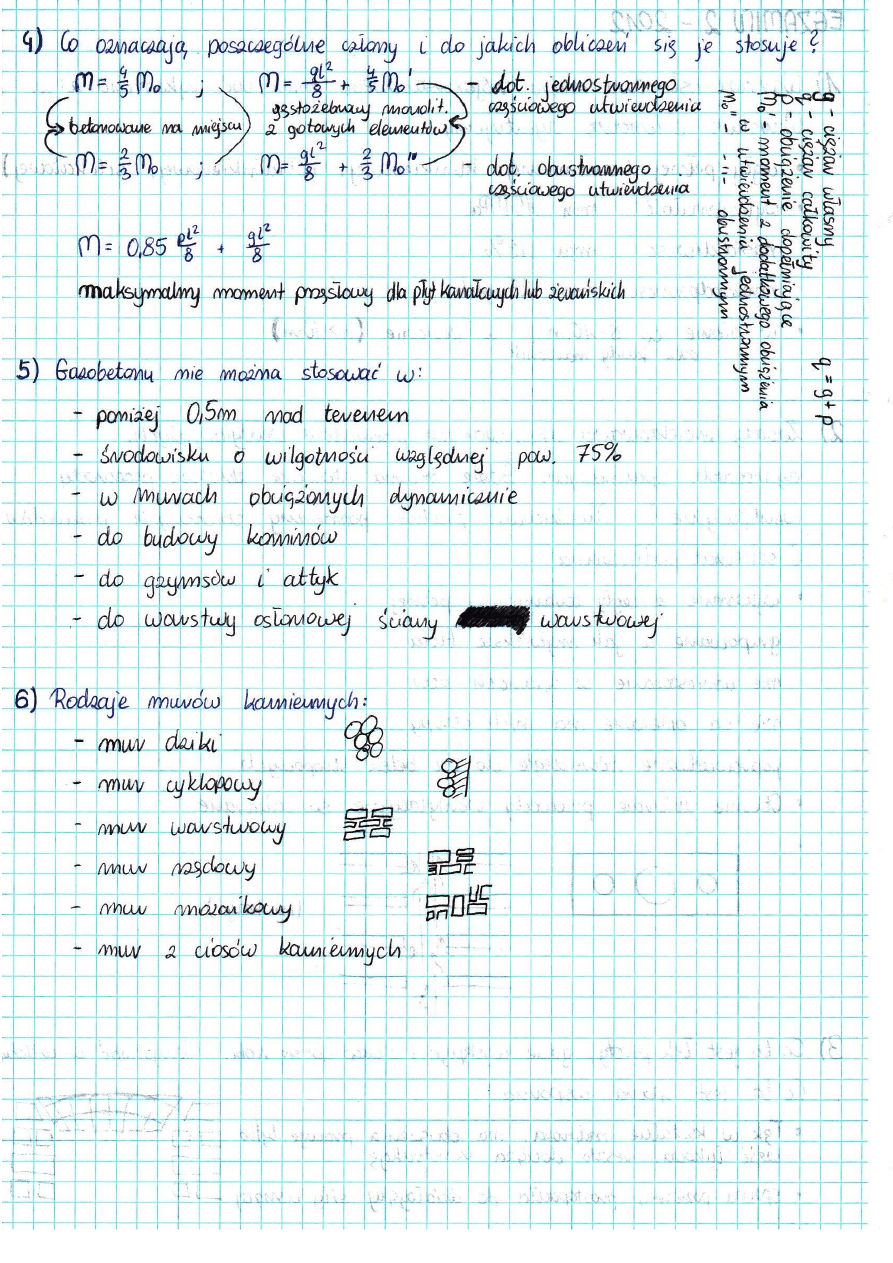 4) Co oznaczają poszczególne człony i do jakich obliczeń się je stosuje?
M = 4/5 M₀ ; M = ql²/8 + 4/5 M₀' - dot. jednostronnego częściowego utwierdzenia
betonowane na miejscu
gęstożebrowy monolit. z gotowych elementów
M = 2/3 M₀ ; M = gl²/8 + 2/3 M₀'' - dot. obustronnego częściowego utwierdzenia
M = 0,85 pl²/8 + gl²/8
maksymalny moment przęsłowy dla płyt kanałowych lub żerańskich
g - ciężar własny
q - ciężar całkowity
p - obciążenie dopełniające
M₀' - moment z dodatkowego obciążenia
w utwierdzeniu jednostronnym
M₀'' - -||- obustronnym
q = g + p
5) Gazobetonu nie można stosować w:
- poniżej 0,5m nad terenem
- środowisku o wilgotności względnej pow. 75%
- w murach obciążonych dynamicznie
- do budowy kominów
- do gzymsów i attyk
- do warstwy osłonowej ściany warstwowej
6) Rodzaje murów kamiennych:
- mur dziki
- mur cyklopowy
- mur warstwowy
- mur rzędowy
- mur mozaikowy
- mur z ciosów kamiennych